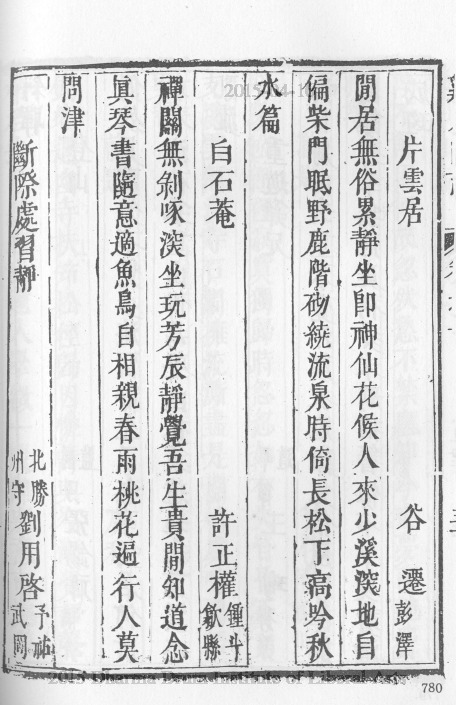 片雲居 谷遷彭澤
閒居無俗累靜坐卽神仙花候人來少溪深地自
偏柴門眠野鹿階砌繞流泉時倚長松下高吟秋
水篇
白石菴 許正權鍾斗歙縣
禪關無剝啄深坐玩芳辰靜覺吾生貴閒知道念
眞琴書隨意適魚鳥自相親春雨桃花遍行人莫
問津
斷際處習靜 北勝州守劉用啓子祐武岡
780